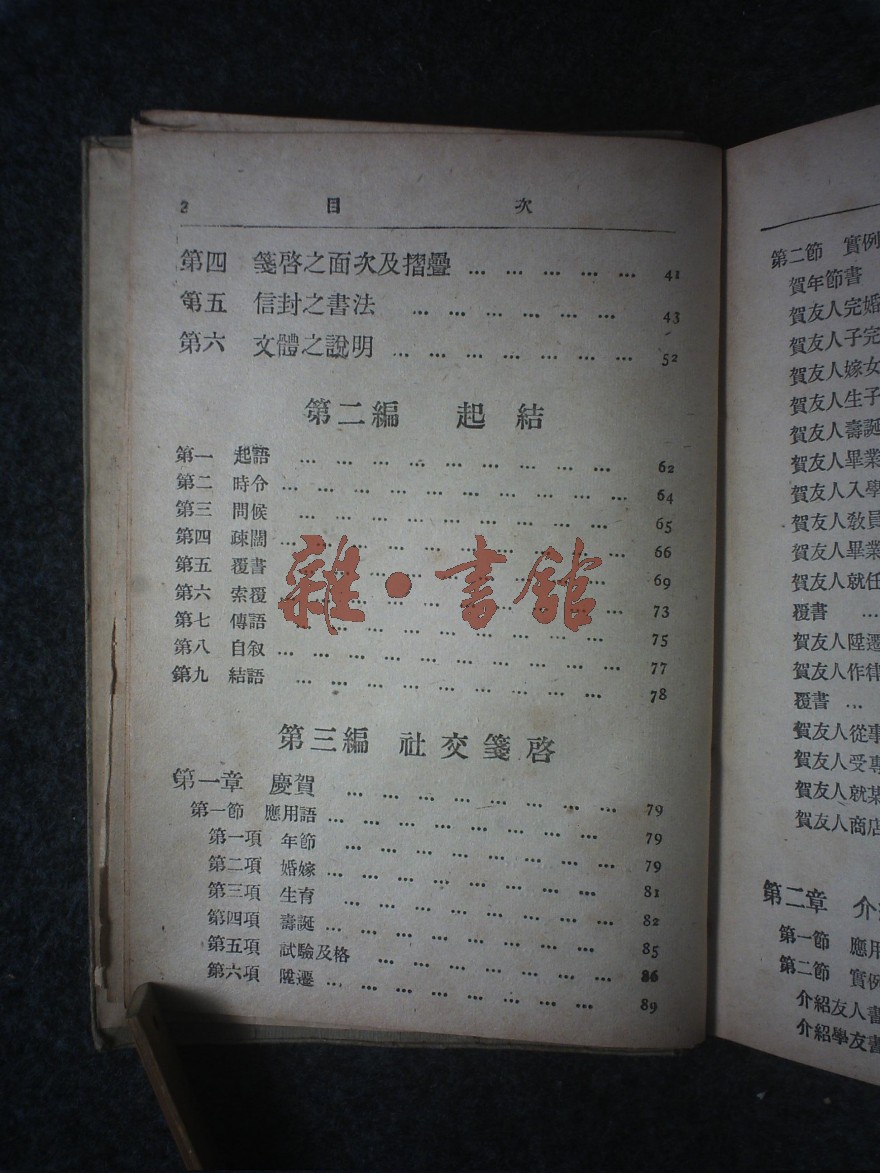 2 目 次
第四 箋啓之面次及摺疊 … … … … … 41
第五 信封之書法 … … … … … … 43
第六 文體之說明 … … … … … … … 52
第二編 起結
第一 起語 … … … … … … … … … 62
第二 時令 … … … … … … … … … … 64
第三 問候 … … … … … … … … … 65
第四 疎闊 … … … … … … … … … … 66
第五 覆書 … … … … … … … … … 69
第六 索覆 … … … … … … … … … … 73
第七 傳語 … … … … … … … … … 75
第八 自叙 … … … … … … … … … … 77
第九 結語 … … … … … … … … … 78
第三編 社交箋啓
第一章 慶賀 … … … … … … … … 79
第一節 應用語 … … … … … … … … 79
第一項 年節 … … … … … … … … 79
第二項 婚嫁 … … … … … … … … 81
第三項 生育 … … … … … … … 82
第四項 壽誕 … … … … … … … … 85
第五項 試驗及格 … … … … … … 86
第六項 陞遷 … … … … … … … … 89
雜·書館
第二節 實例
賀年節書
賀友人完婚
賀友人子完
賀友人嫁女
賀友人生子
賀友人壽誕
賀友人畢業
賀友人入學
賀友人教員
賀友人畢業
賀友人就任
覆書 …
賀友人陞遷
賀友人作律
覆書 …
賀友人從事
賀友人受專
賀友人就某
賀友人商店
第二章 介
第一節 應用
第二節 實例
介紹友人書
介紹學友書